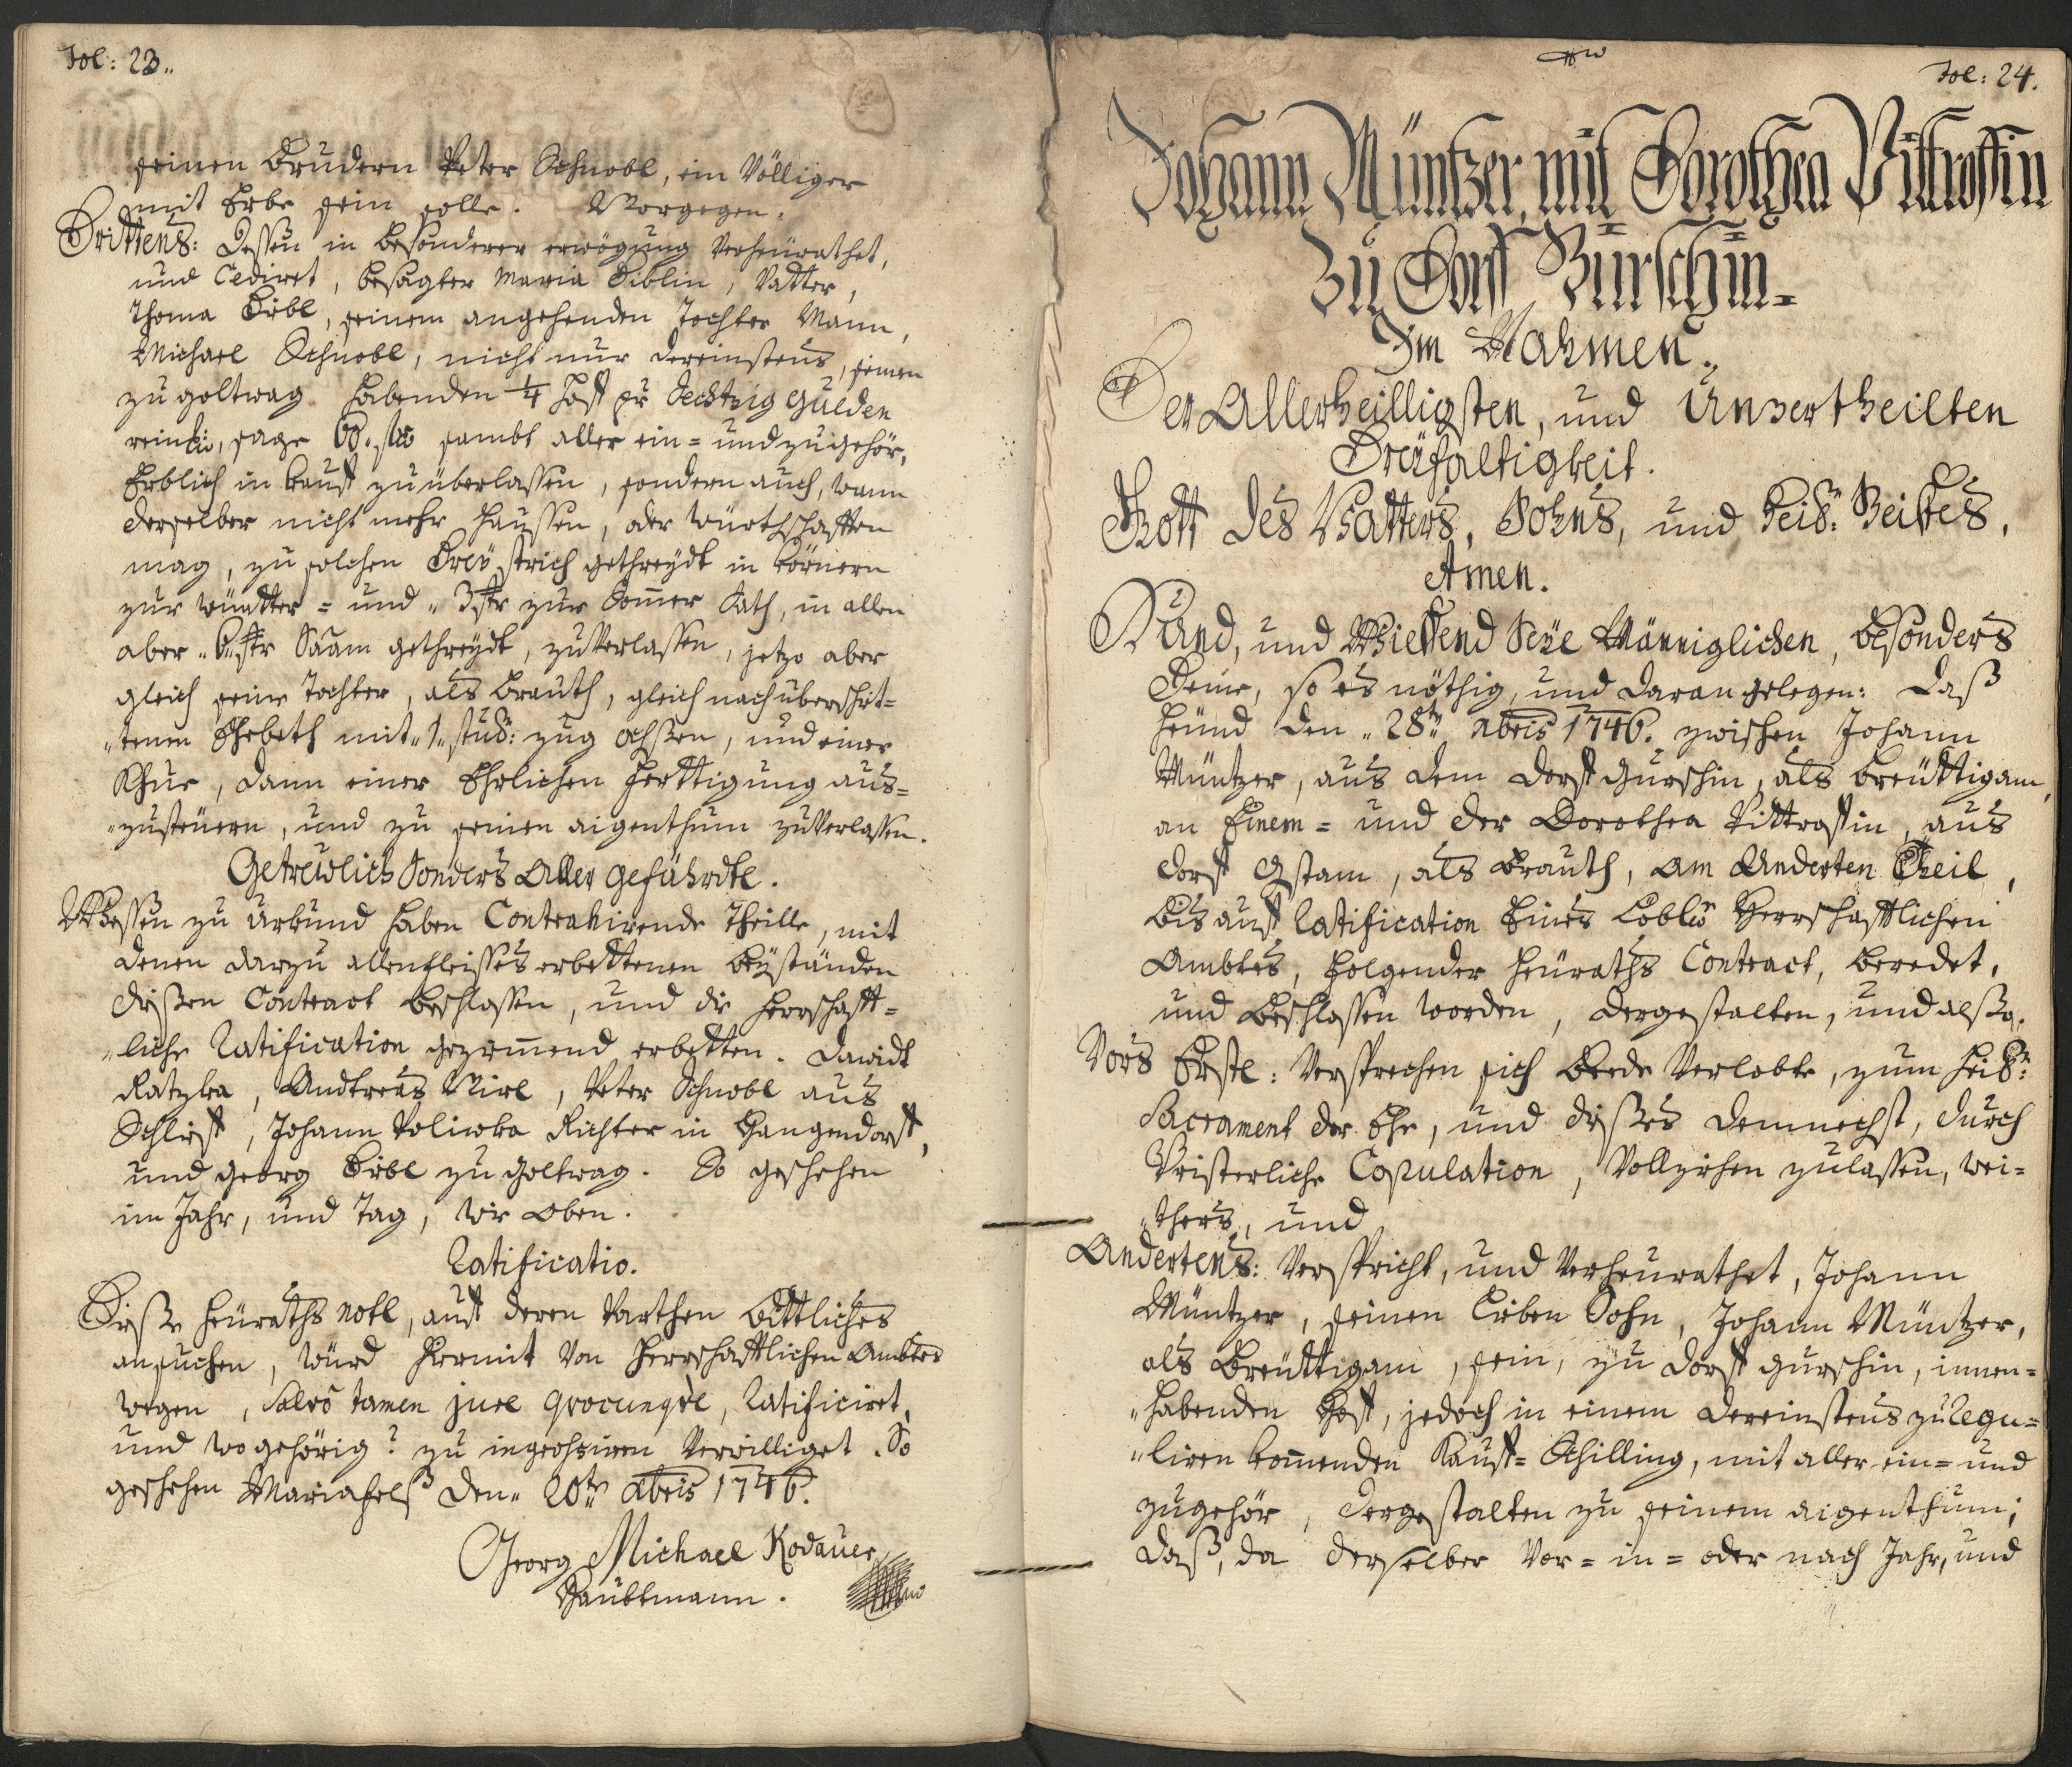 Fol: 23..
seinen Brudern Peter Schnobl, ein Völliger
mit Erbe sein solle. Worgegen.
Drittens: Dessen in besonderer erwögung verheürathet,
und Cediret, besagter Maria Diblin, Vatter,
Thoma Dibl, seinem angehenden Tochter Mann,
Michael Schnobl, nicht nur dereinstens, seinen
zu goltwag habenden 1/4 Hoff pr Sechtzig gulden
rein, sage 60. sambt aller ein= und zugehör,
Erblich in kauff zu überlassen, sondern auch, wann
derselber nicht mehr Haussen, oder würthschafften
mag, zu solchen Dreÿ strich gethreydt in körnern
zur wüntter= und „ 3 str zur Sommer Sath, in allen
aber „ 6. str Saam gethreydt, zu verlassen, jetzo aber
gleich seine Tochter, als brauth, gleich nach überschrit=
„tenen Ehebeth mit „ 1. stuckh: zug ochssen, und einer
Khue, dann einer Ehrlichen ferttigung aus=
„zusteüern, und zu seinen aigenthum zu verlassen.
Getreülich Sonders Aller Gefährdte.
Wessen zu Urkund haben Contrahirende Theille, mit
denen darzu allenfleisses erbettenen beÿständen
dießen Contract beschlossen, und die Herrschafft=
„liche Ratification gezimmend erbetten. Dawidt
Ratzka, Andtreas Pirl, Peter Schnobl aus
Schlieff, Johann Poliwka Richter in Hangendorff,
und Georg Dibl zu Goltwag. So geschehen
im Jahr, und Tag, wie Oben.
Ratificatio.
Dieße Heüraths Notl, auff deren Parthen bittliches
ansuchen, würd hiermit von Herrschafftlichen Ambtes
wegen, Salvô tamen jure quocunqvè, Ratificiret,
und wo gehörig? zu ingrohsiren verwilliget. So
geschehen Mariafelß den „ 20ten Xbris 1746.
Georg Michael Kodauer
Haubtmann.
Fol: 24.
Johann Müntzer, mit Dorothea Pittroffin
Zu Dorff Gürschin=
Im Nahmen.
Der Allerheilligsten, und Unzertheilten
Dreÿfaltigkeit.
Gott des Vatters, Sohns, und heil: Geistes,
Amen.
Kund, und Wiessend Seÿe Männiglichen, besonders
Deme, so es nöthig, und daran gelegen: daß
heünd den „ 28ten Xbris 1746. zwischen Johann
Müntzer, aus dem dorff Gurschin, als breüttigam,
an Einem= und der Dorothea Pittroffin, aus
dorff Gstam, als brauth, am Anderten Theil,
bis auff Ratification Eines Löbl. Herrschafftlichen
Ambtes, folgender Heüraths Contract, beredet,
und beschlossen worden, dergestalten, und alßo.
Vors Erste: Versprechen sich beede Verlobte, zum heil:
Sacrament der Ehe, und dißes demnechst, durch
Pristerliche Copulation, Vollziehen zulassen, wei=
„thers, und
Andertens: Verspricht, und verheurathet, Johann
Müntzer, seinen lieben Sohn, Johann Müntzer,
als breüttigam, sein, zu dorff Gurschin, innen=
„habenden Hoff, jedoch in einem dereinstens zu Regu=
„liren kommenden Kauff= Schilling, mit aller ein= und
zugehör, dergestalten zu seinem aigenthum;
daß, da derselber Vor= in= oder nach Jahr, und